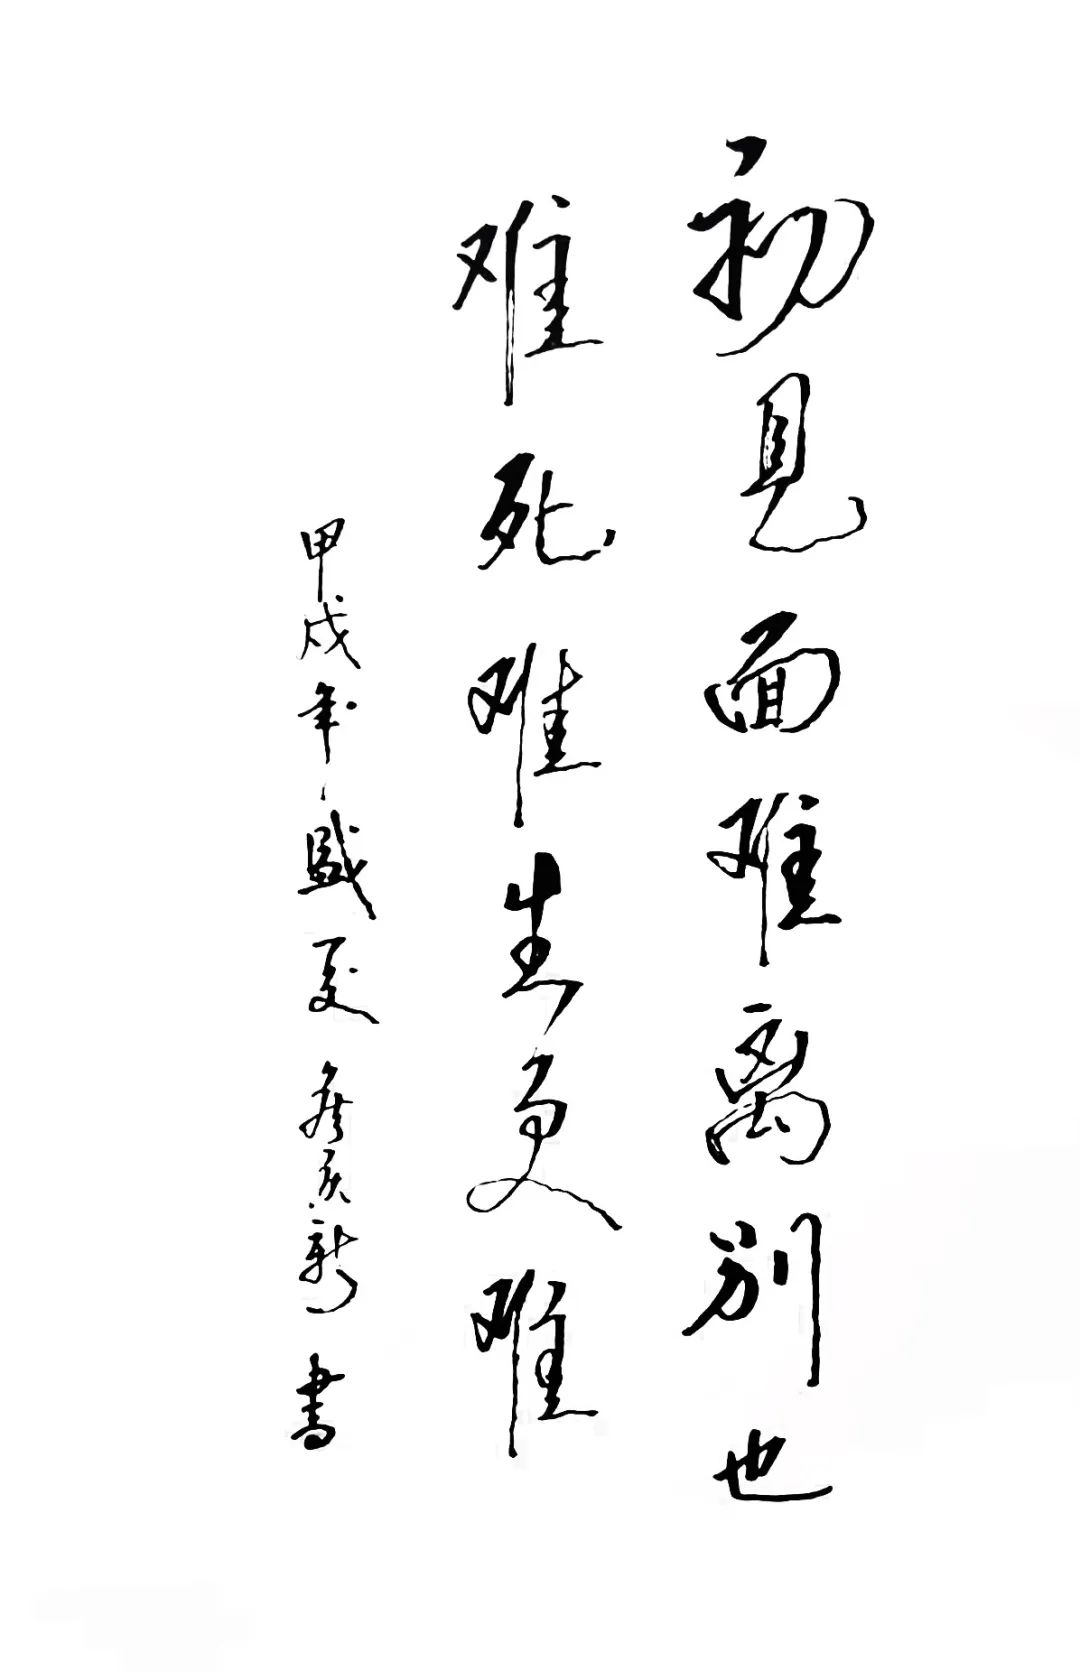 初見面难离别也
难死难生更难
甲戌年盛夏 新 書